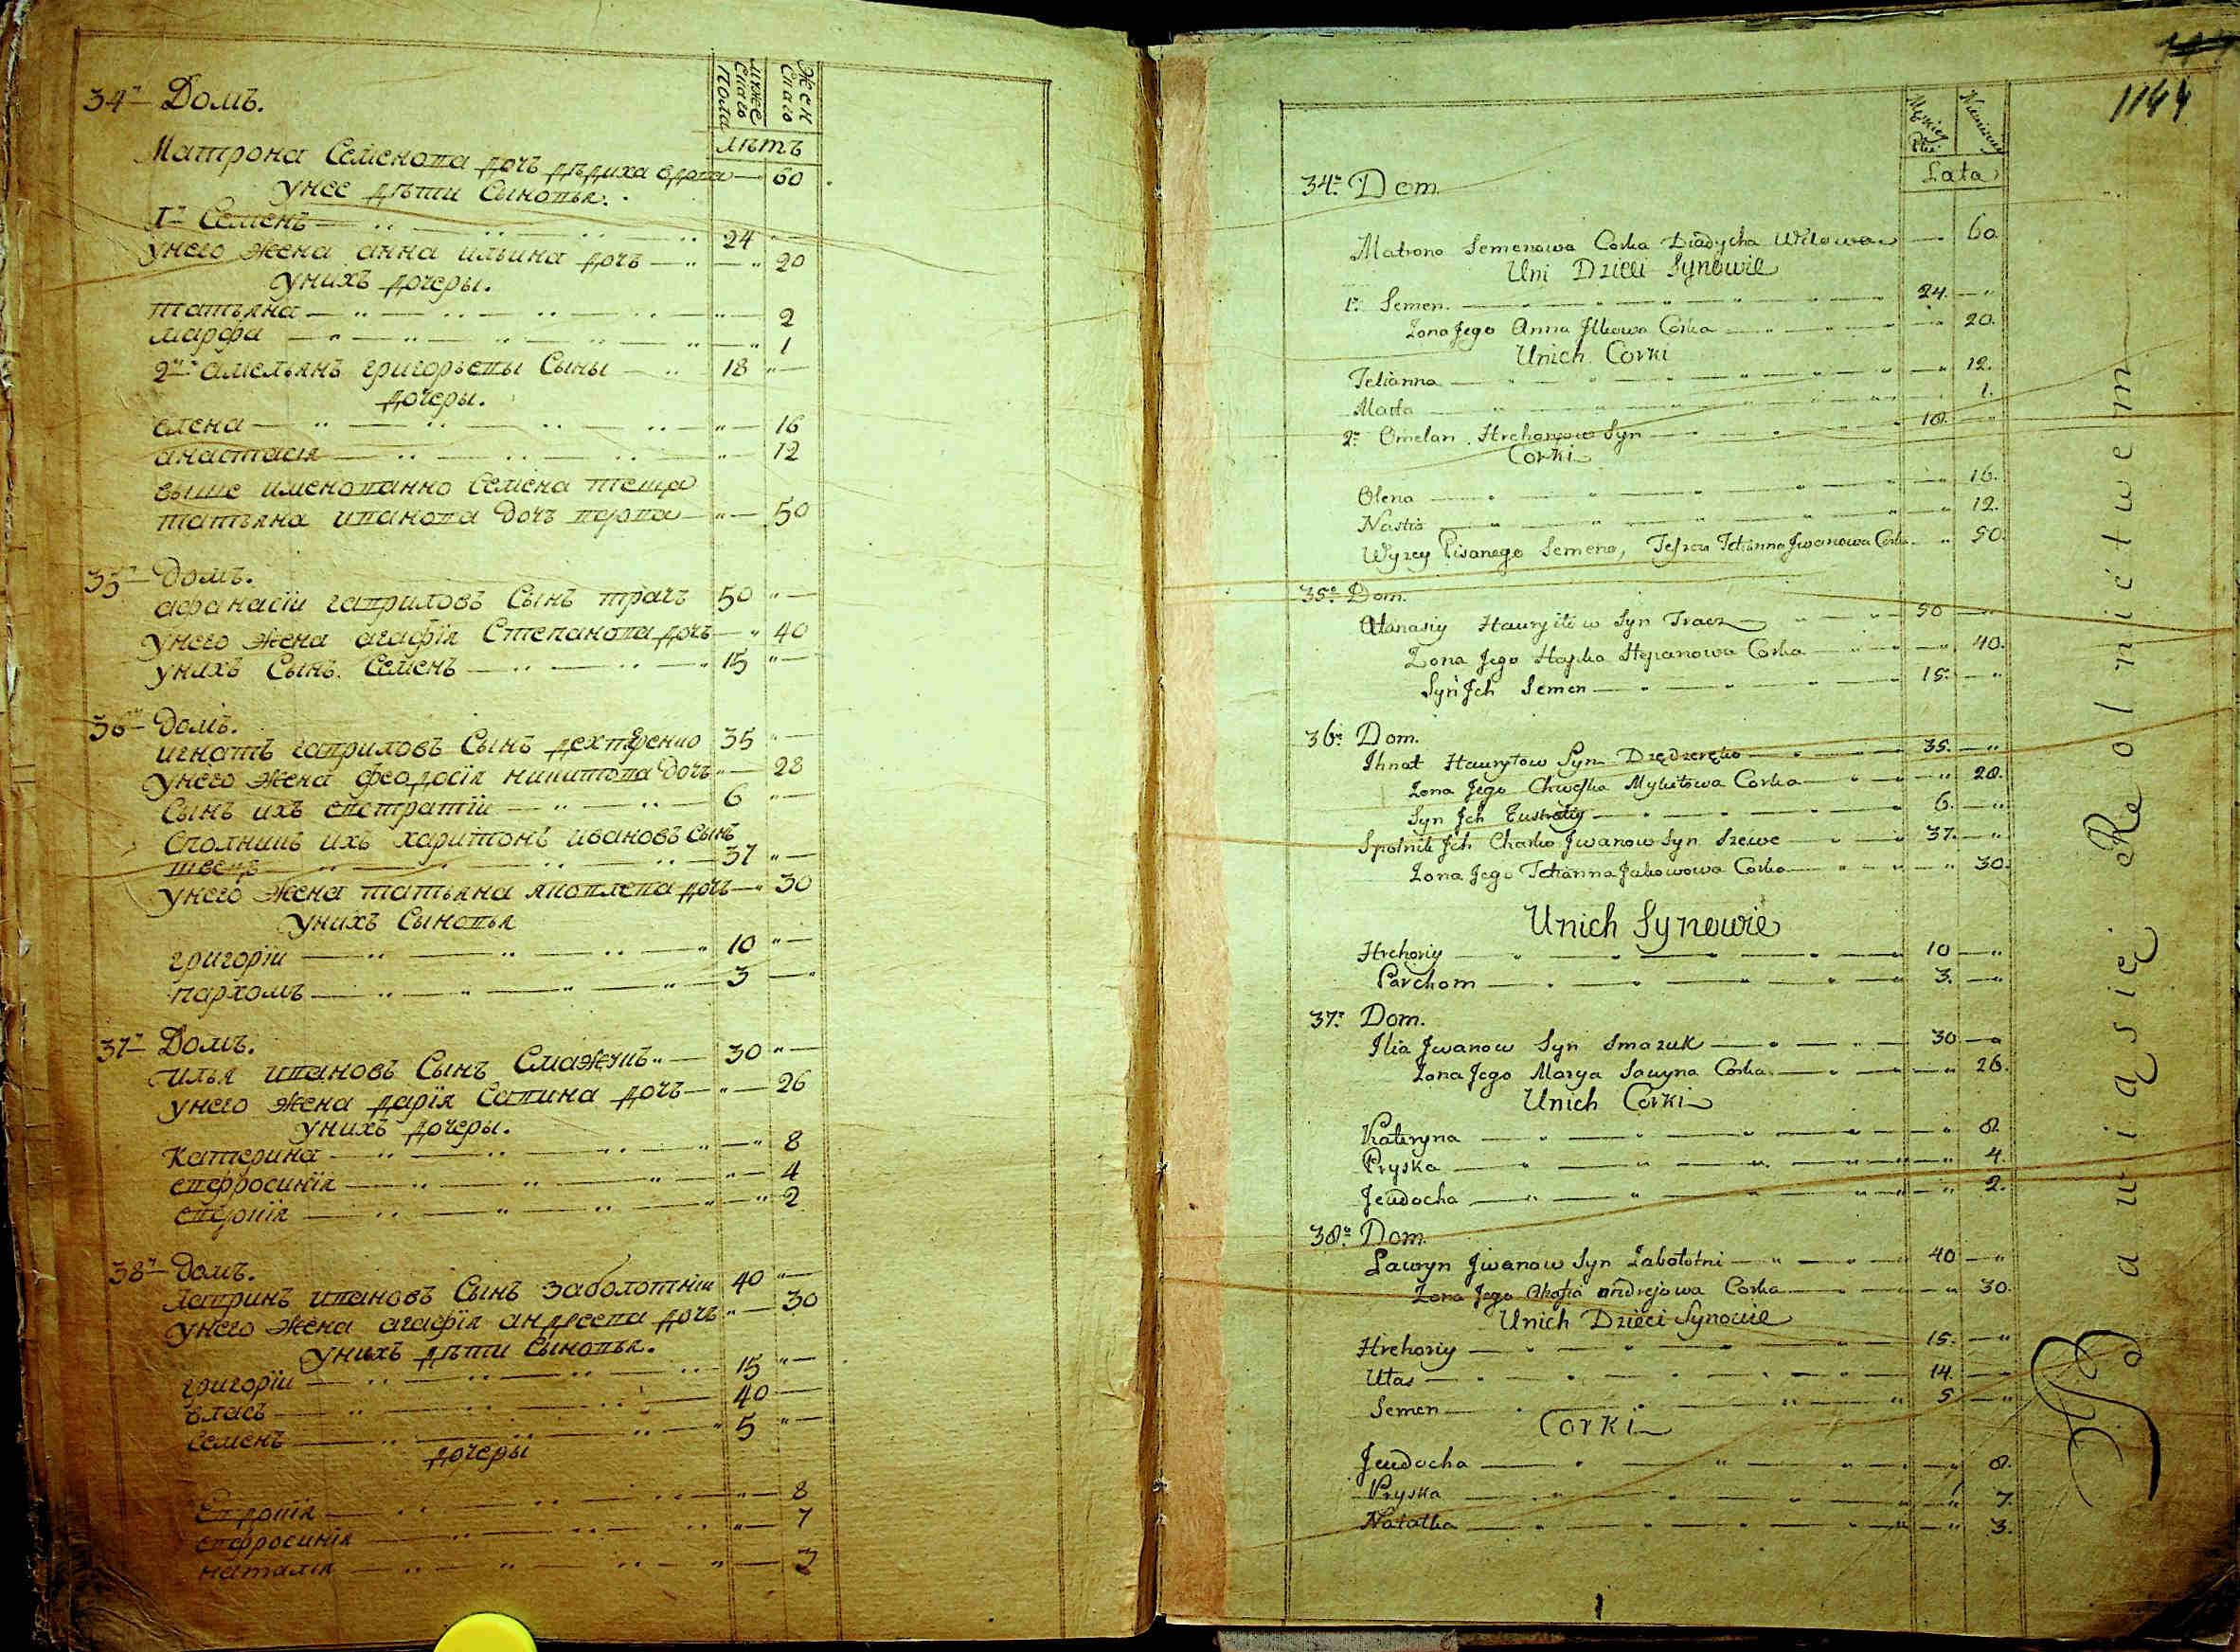 муже
скаго
пола
Жен
скаго
лѣтъ
34й Домъ.
Матрона Семенова дочь дѣдиха вдова — 60
унее дѣти Сыновья.
1й Семенъ — 24 —
унего жена анна ильина дочъ — 20
унихъ дочеры.
татьяна — 2
марфа — 1
2й амельянъ григорьевы Сыны — 18 —
дочеры.
елена — 16
анастасія — 12
выше именованно Семена теща
татьяна иванова дочъ вдова — 50
35й домъ.
афанасіи гавриловъ Сынъ трачъ 50 —
унего жена агафія Степанова дочъ — 40
унихъ Сынъ Семенъ — 15 —
36й домъ.
игнатъ гавриловъ Сынъ 35 —
унего жена феодосія никитова дочъ — 28
Сынъ ихъ евстратіи — 6 —
Сполникъ ихъ харитонъ ивановъ сынъ
швецъ — 37 —
унего жена татьяна яковлева дочъ — 30
унихъ Сыновья
григоріи — 10 —
пархомъ — 3 —
37й Домъ.
илья ивановъ Сынъ — 30 —
унего жена дарія Савина дочъ — 26
унихъ дочеры.
Катерина — 8
евфросинія — 4
евдокія — 2
38й домъ.
лавринъ ивановъ Сынъ заболотніи 40 —
унего жена агафія андреева дочъ — 30
унихъ дѣти Сыновья.
григоріи — 15 —
власъ — 40 —
Семенъ — 5 —
дочеры
Евдокія — 8
евфросинія — 7
наталія — 3
1144
Lata
34o Dom
Matrona Semenowa Corka Diadycha Wdowa — 60
Uni Dzieci Synowie
1o Semen — 24. —
Zona Jego Anna Jlkowa Corka — 20.
Unich Corki
Tetianna — 12.
Marta — 1.
2o Omelan Hrehorow Syn — 18. —
Corki
Olena — 16.
Nastia — 12.
Wyzey Pisanego Semena, Teszcza Tetianna Jwanowa Corka — 50.
35o Dom.
Atanasiy Hauryłow Syn Tracz — 50 —
Zona Jego Hapka Stepanowa Corka — 40.
Syn Jch Semen — 15. —
36o Dom.
Jhnat Hauryłow Syn — 35. —
Zona Jego Chweska Mykitowa Corka — 28.
Syn Jch Eustratiy — 6. —
Spolnik Jch Charko Jwanow Syn Szewc — 37. —
Zona Jego Tetianna Jakowowa Corka — 30.
Unich Synowie
Hrehoriy — 10 —
Parchom — 3. —
37o Dom.
Jlia Jwanow Syn Smazuk — 30 —
Zona Jego Marya Sawyna Corka — 26.
Unich Corki
Kateryna — 8.
Pryska — 4.
Jeudocha — 2.
38o Dom
Lawryn Jwanow Syn Zabołotni — 40 —
Zona Jego Ahafia andrejowa Corka — 30.
Unich Dzieci Synowie
Hrehoriy — 15. —
Ułas — 14. —
Semen — 5 —
Corki
Jeudocha — 8.
Pryska — 7.
Natalka — 3.
Bawią się Rolnictwem